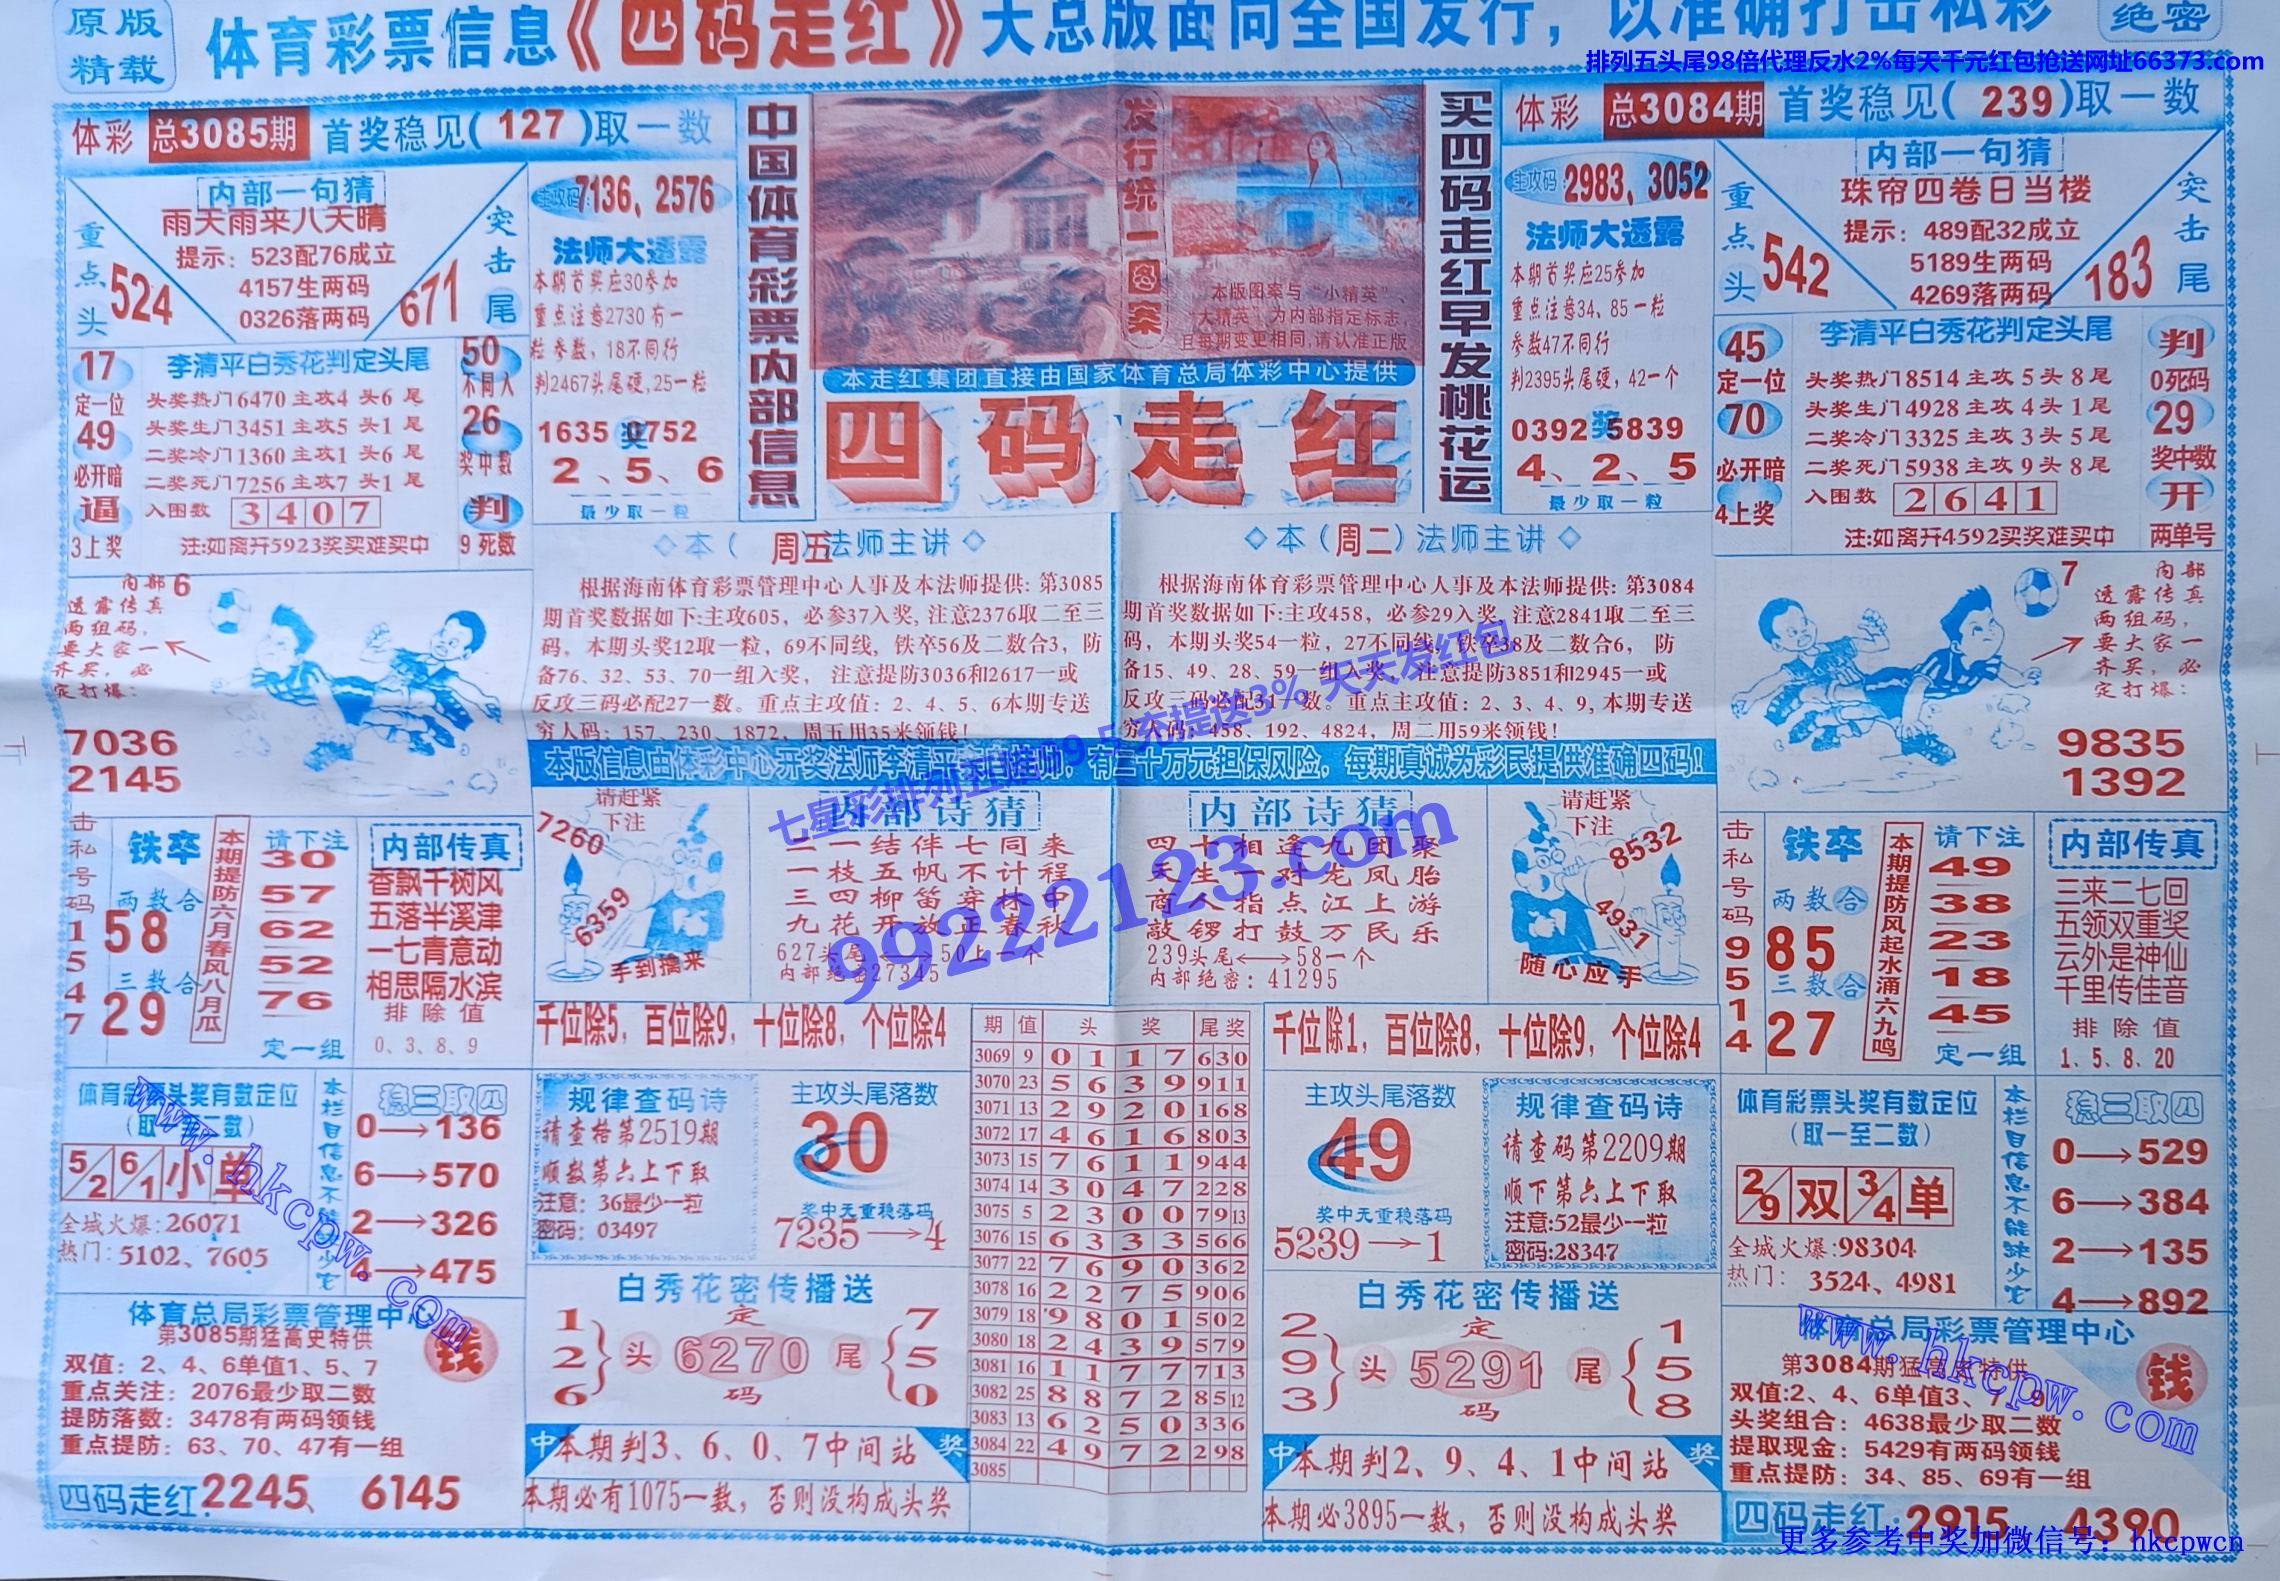 原版
精载
体育彩票信息《四码走红》大总版面向全国发行，以准确打击私彩
绝密
排列五头尾98倍代理反水2%每天千元红包抢送网址66373.com
体彩 总3085期 首奖稳见(127)取一数
内部一句猜
雨天雨来八天晴
提示：523配76成立
4157生两码
0326落两码
重点头
524
突击尾
671
主攻码:7136, 2576
法师大透露
本期首奖应30参加
重点注意2730有一
粒参数，18不同行
判2467头尾硬,25一粒
1635 奖 0752
2、5、6
最少取一粒
17
定一位
49
必开暗
逼
3上奖
李清平白秀花判定头尾
头奖热门6470主攻4头6尾
头奖生门3451主攻5头1尾
二奖冷门1360主攻1头6尾
二奖死门7256主攻7头1尾
入围数 3407
注:如离开5923奖买难买中
50
不同入
26
奖中数
判
9死数
中国体育彩票内部信息
发行统一图案
本版图案与“小精英”、
“大精英”为内部指定标志，
且每期变更相同,请认准正版
本走红集团直接由国家体育总局体彩中心提供
四码走红
买四码走红早发桃花运
体彩 总3084期 首奖稳见(239)取一数
主攻码:2983, 3052
法师大透露
本期首奖应25参加
重点注意34、85一粒
参数47不同行
判2395头尾硬，42一个
0392 奖 5839
4、2、5
最少取一粒
内部一句猜
珠帘四卷日当楼
提示：489配32成立
5189生两码
4269落两码
重点头
542
突击尾
183
45
定一位
70
必开暗
4上奖
李清平白秀花判定头尾
头奖热门8514主攻5头8尾
头奖生门4928主攻4头1尾
二奖冷门3325主攻3头5尾
二奖死门5938主攻9头8尾
入围数 2641
注:如离开4592买奖难买中
判
0死码
29
奖中数
开
两单号
内部6
透露传真
两组码，
要大家一
齐买，必
定打爆：
7036
2145
◇本（周五）法师主讲◇
根据海南体育彩票管理中心人事及本法师提供: 第3085
期首奖数据如下:主攻605，必参37入奖, 注意2376取二至三
码，本期头奖12取一粒，69不同线, 铁卒56及二数合3，防
备76、32、53、70一组入奖， 注意提防3036和2617一或
反攻三码必配27一数。重点主攻值：2、4、5、6本期专送
穷人码：157、230、1872，周五用35来领钱！
◇本（周二）法师主讲◇
根据海南体育彩票管理中心人事及本法师提供: 第3084
期首奖数据如下:主攻458，必参29入奖, 注意2841取二至三
码，本期头奖54一粒，27不同线, 铁卒38及二数合6，防
备15、49、28、59一组入奖， 注意提防3851和2945一或
反攻三码必配31一数。重点主攻值：2、3、4、9, 本期专送
穷人码：458、192、4824，周二用59来领钱！
7 内部
透露传真
两组码，
要大家一
齐买，必
定打爆：
9835
1392
本版信息由体彩中心开奖法师李清平，有三十万元担保风险，每期真诚为彩民提供准确四码！
天天发红包
99222123.com
击私号码1547
铁卒
两数合
58
三数合
29
本期提防六月春风八月瓜
请下注
30
57
62
52
76
定一组
内部传真
香飘千树风
五落半溪津
一七青意动
相思隔水滨
排除值
0、3、8、9
请赶紧
下注
7260
6359
手到擒来
内部诗猜
二一结伴七同来
一枝五帆不计程
三四柳笛穿林中
九花开放正春秋
627头尾←→50上一个
内部绝密27345
内部诗猜
四十相逢九团聚
天生一对龙凤胎
商人指点江上游
敲锣打鼓万民乐
239头尾←→58一个
内部绝密：41295
请赶紧
下注
8532
4931
随心应手
击私号码9514
铁卒
两数合
85
三数合
27
本期提防风起水涌六九鸣
请下注
49
38
23
18
45
定一组
内部传真
三来二七回
五领双重奖
云外是神仙
千里传佳音
排除值
1、5、8、20
千位除5，百位除9，十位除8，个位除4
千位除1，百位除8，十位除9，个位除4
期 值 头 奖 尾奖
3069 9 0 1 1 7 630
3070 23 5 6 3 9 911
3071 13 2 9 2 0 168
3072 17 4 6 1 6 803
3073 15 7 6 1 1 944
3074 14 3 0 4 7 228
3075 5 2 3 0 0 7913
3076 15 6 3 3 3 566
3077 22 7 6 9 0 362
3078 16 2 2 7 5 906
3079 18 9 8 0 1 502
3080 18 2 4 3 9 579
3081 16 1 1 7 7 713
3082 25 8 8 7 2 8512
3083 13 6 2 5 0 336
3084 22 4 9 7 2 298
3085
体育彩票头奖有数定位
5/2 6/1 小 单
全城火爆:26071
热门: 5102、7605
稳三取四
0→136
6→570
2→326
4→475
规律查码诗
请查格第2519期
顺数第六上下取
注意：36最少一粒
密码：03497
主攻头尾落数
30
奖中无重稳落码
7235→4
主攻头尾落数
49
奖中无重稳落码
5239→1
规律查码诗
请查码第2209期
顺下第六上下取
注意:52最少一粒
密码:28347
体育彩票头奖有数定位
(取一至二数)
2/9 双 3/4 单
全城火爆:98304
热门： 3524、4981
本栏目信息不能缺少它
稳三取四
0→529
6→384
2→135
4→892
www.hkcpw.com
体育总局彩票管理中心
第3085期猛高史特供
钱
双值：2、4、6单值1、5、7
重点关注：2076最少取二数
提防落数：3478有两码领钱
重点提防：63、70、47有一组
四码走红:2245、 6145
白秀花密传播送
1 2 6 头 定 6270 码 尾 7 5 0
中 本期判3、6、0、7中间站 奖
本期必有1075一数，否则没构成头奖
白秀花密传播送
2 9 3 头 定 5291 码 尾 1 5 8
中 本期判2、9、4、1中间站 奖
本期必3895一数，否则没构成头奖
体育总局彩票管理中心
钱
www.hkcpw.com
头奖组合：4638最少取二数
提取现金：5429有两码领钱
重点提防：34、85、69有一组
四码走红:2915 4390
更多参考中奖加微信号：hkcpwcn